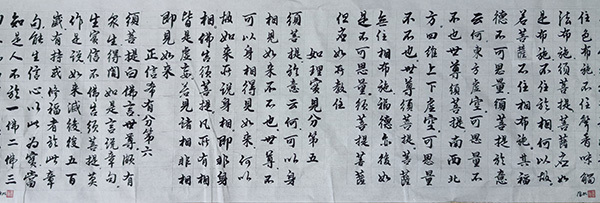 住色布施不住聲香味觸
法布施須菩提菩薩應如
是布施不住於相何以故
若菩薩不住相布施其福
德不可思量須菩提於意
云何東方虛空可思量不
不也世尊須菩提南西北
方四維上下虛空可思量
不不也世尊須菩提菩薩
無住相布施福德亦復如
是不可思量須菩提菩薩
但應如所教住
如理實見分第五
須菩提於意云何可以身
相見如來不不也世尊不
可以身相得見如來何以
故如來所說身相即非身
相佛告須菩提凡所有相
皆是虛妄若見諸相非相
即見如來
正信希有分第六
須菩提白佛言世尊頗有
眾生得聞如是言說章句
生實信不佛告須菩提莫
作是說如來滅後後五百
歲有持戒修福者於此章
句能生信心以此為實當
知是人不於一佛二佛三